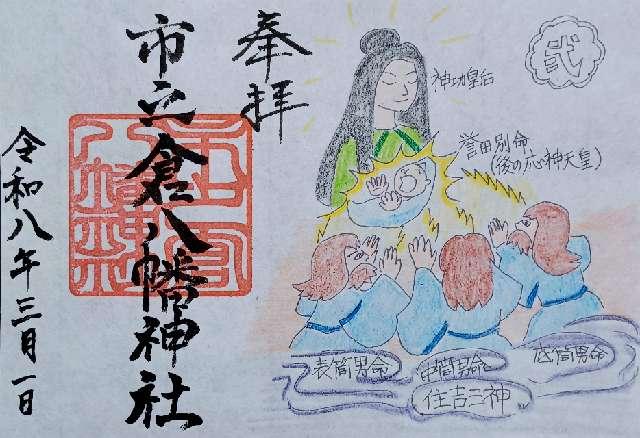 奉拝
市之倉八幡神社
令和八年三月一日
弐
神功皇后
誉田別命
(後の応神天皇)
表筒男命
中筒男命
底筒男命
住吉三神